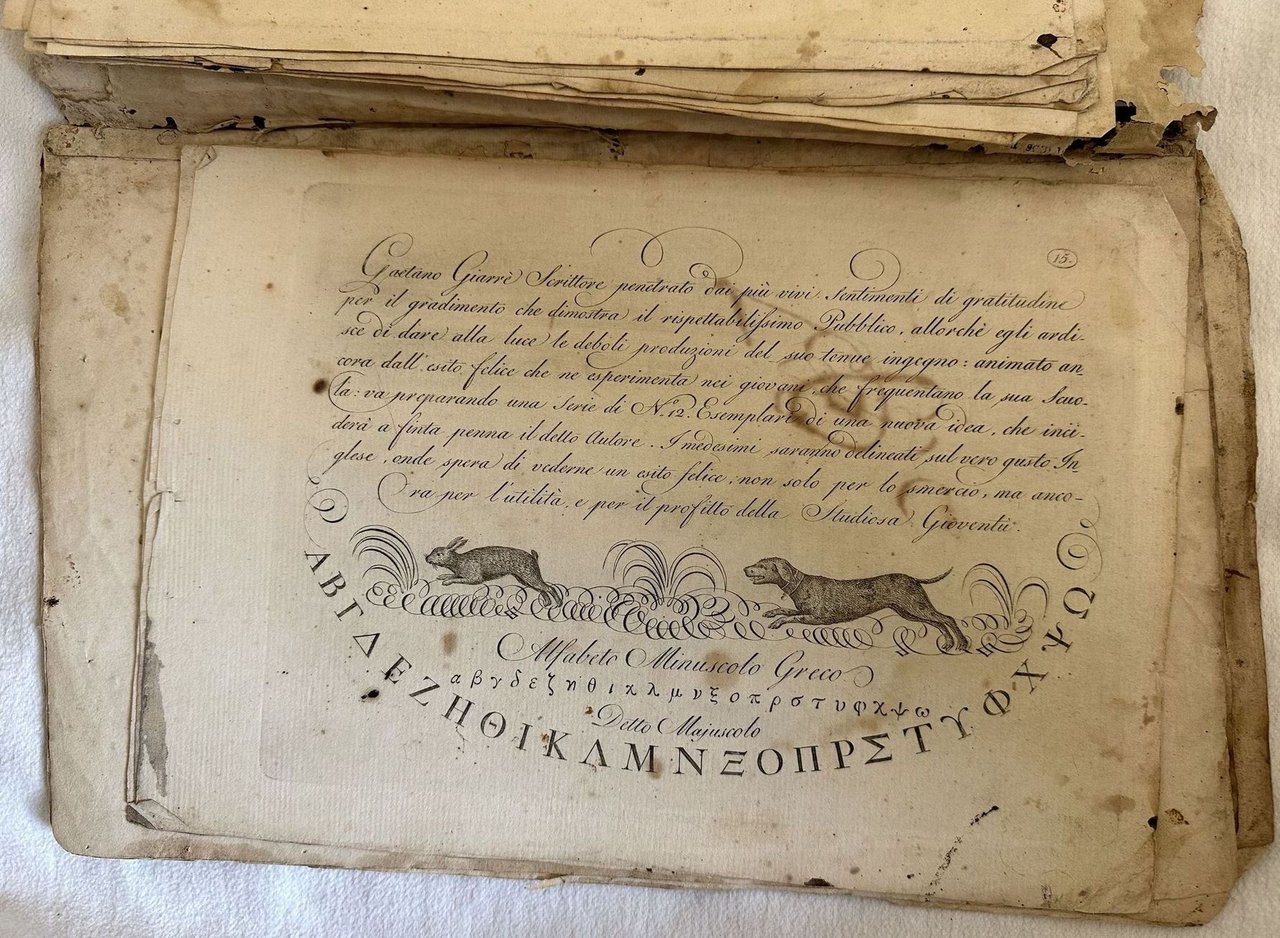 15.
Gaetano Giarrè Scrittore penetrato dai più vivi sentimenti di gratitudine
per il gradimento che dimostra il rispettabilissimo Pubblico, allorchè egli ardi-
sce di dare alla luce le deboli produzioni del suo tenue ingegno: animato an-
cora dall'esito felice che ne esperimenta nei giovani, che frequentano la sua Scuo-
la: va preparando una Serie di N.º 12. Esemplari di una nuova idea, che inci-
derà a finta penna il detto Autore. I medesimi saranno delineati sul vero gusto In-
glese, onde spera di vederne un esito felice, non solo per lo smercio, ma anco-
ra per l'utilità, e per il profitto della Studiosa Gioventù.
Alfabeto Minuscolo Greco
α β γ δ ε ζ η θ ι κ λ μ ν ξ ο π ρ σ τ υ φ χ ψ ω
Detto Majuscolo
Α Β Γ Δ Ε Ζ Η Θ Ι Κ Λ Μ Ν Ξ Ο Π Ρ Σ Τ Υ Φ Χ Ψ Ω